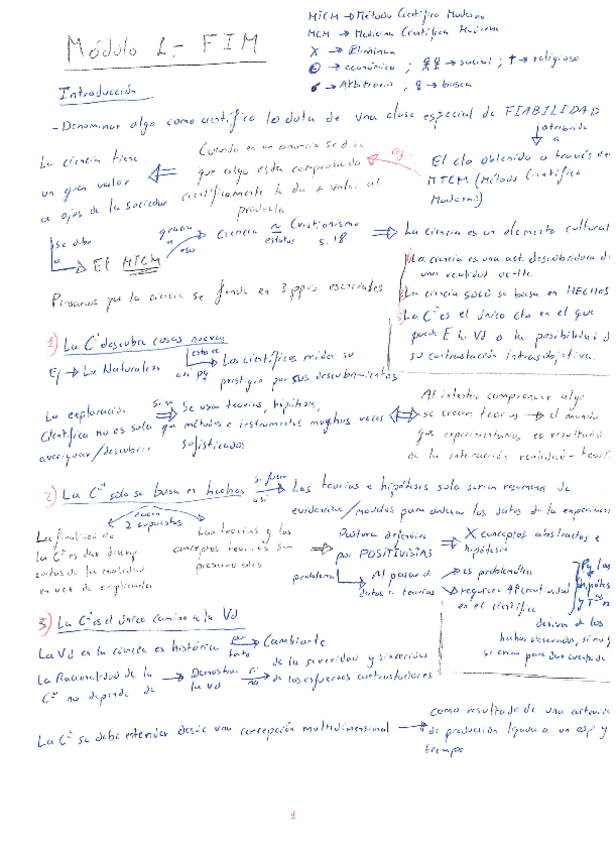 Módulo 1.- FIM
MTCM → Método Científico Moderno
MCM → Medicina Científica Moderna
X → Eliminan
→ económico ; → social ; → religioso
→ Arbitraria ; → busca
Introducción
- Denominar algo como científico lo dota de una clase especial de FIABILIDAD
La ciencia tiene
un gran valor
a ojos de la sociedad
Cuando en un anuncio se dice
que algo está comprobado
científicamente le da + valor al
producto
ej.
El cto obtenido a través del
MTCM (Método Científico
Moderno)
se debe
a
El MTCM
gracias
a
eso
Ciencia ≈ Cristianismo
estatus s. 18
⇒ La ciencia es un elemento cultural
Pensamos que la ciencia se funda en 3 ppos esenciales
La ciencia es una act. descubridora de
una realidad oculta.
La ciencia SOLO se basa en HECHOS
La Cª es el único cto en el que
puede E la Vd o la posibilidad d
su contrastación intrasubjetiva.
1) La Cª descubre cosas nuevas
Ej → La Naturaleza
esto es
así pq
Los científicos mida su
prestigio por sus descubrimientos
La exploración
científica no es solo
averiguar/descubrir
si no
que
Se usan teorías, hipótesis,
métodos e instrumentos muchas veces
sofisticados
Al intentar comprender algo
se crean teorías → el mundo
que experimentamos es resultado
de la interacción realidad-teoría
2) La Cª sólo se basa en hechos
si fuera
así
Las teorías e hipótesis solo serían resúmenes de
evidencias/modelos para ordenar los datos de la experiencia
2 supuestos
La finalidad de
la Cª es dar
de la realidad
en vez de explicarlas
Las teorías y los
conceptos teóricos son
Postura defensiva
por POSITIVISTAS
⇒ X conceptos abstractos e
hipótesis
problema
Al pasar de
datos a teorías
es problemático
requiere creatividad
en el científico
Pq las
hipótesis
y
deriva de los
hechos observados, si no q
se crean para dar cuenta de
3) La Cª es el único camino a la Vd
La Vd en la ciencia es histórica
por
tanto
Cambiante
La Racionalidad de la
Cª no depende de
→ Demostrar
la Vd
si
no
de la severidad y sinceridad
de los esfuerzos contrastadores
La Cª se debe entender desde una concepción multidimensional →
como resultado de una actividad
de producción ligada a un esp y
tiempo
1